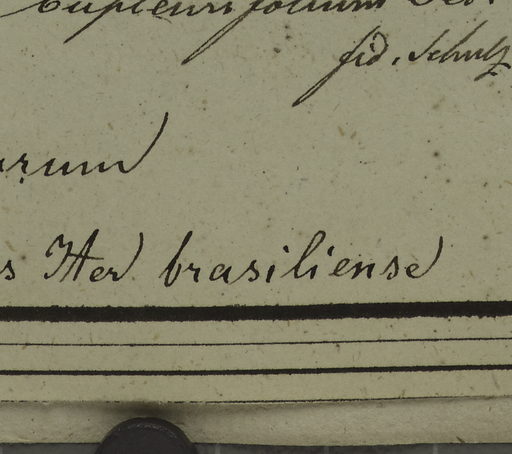 bupleurifolium
fid. Schultz
arum
s Iter brasiliense